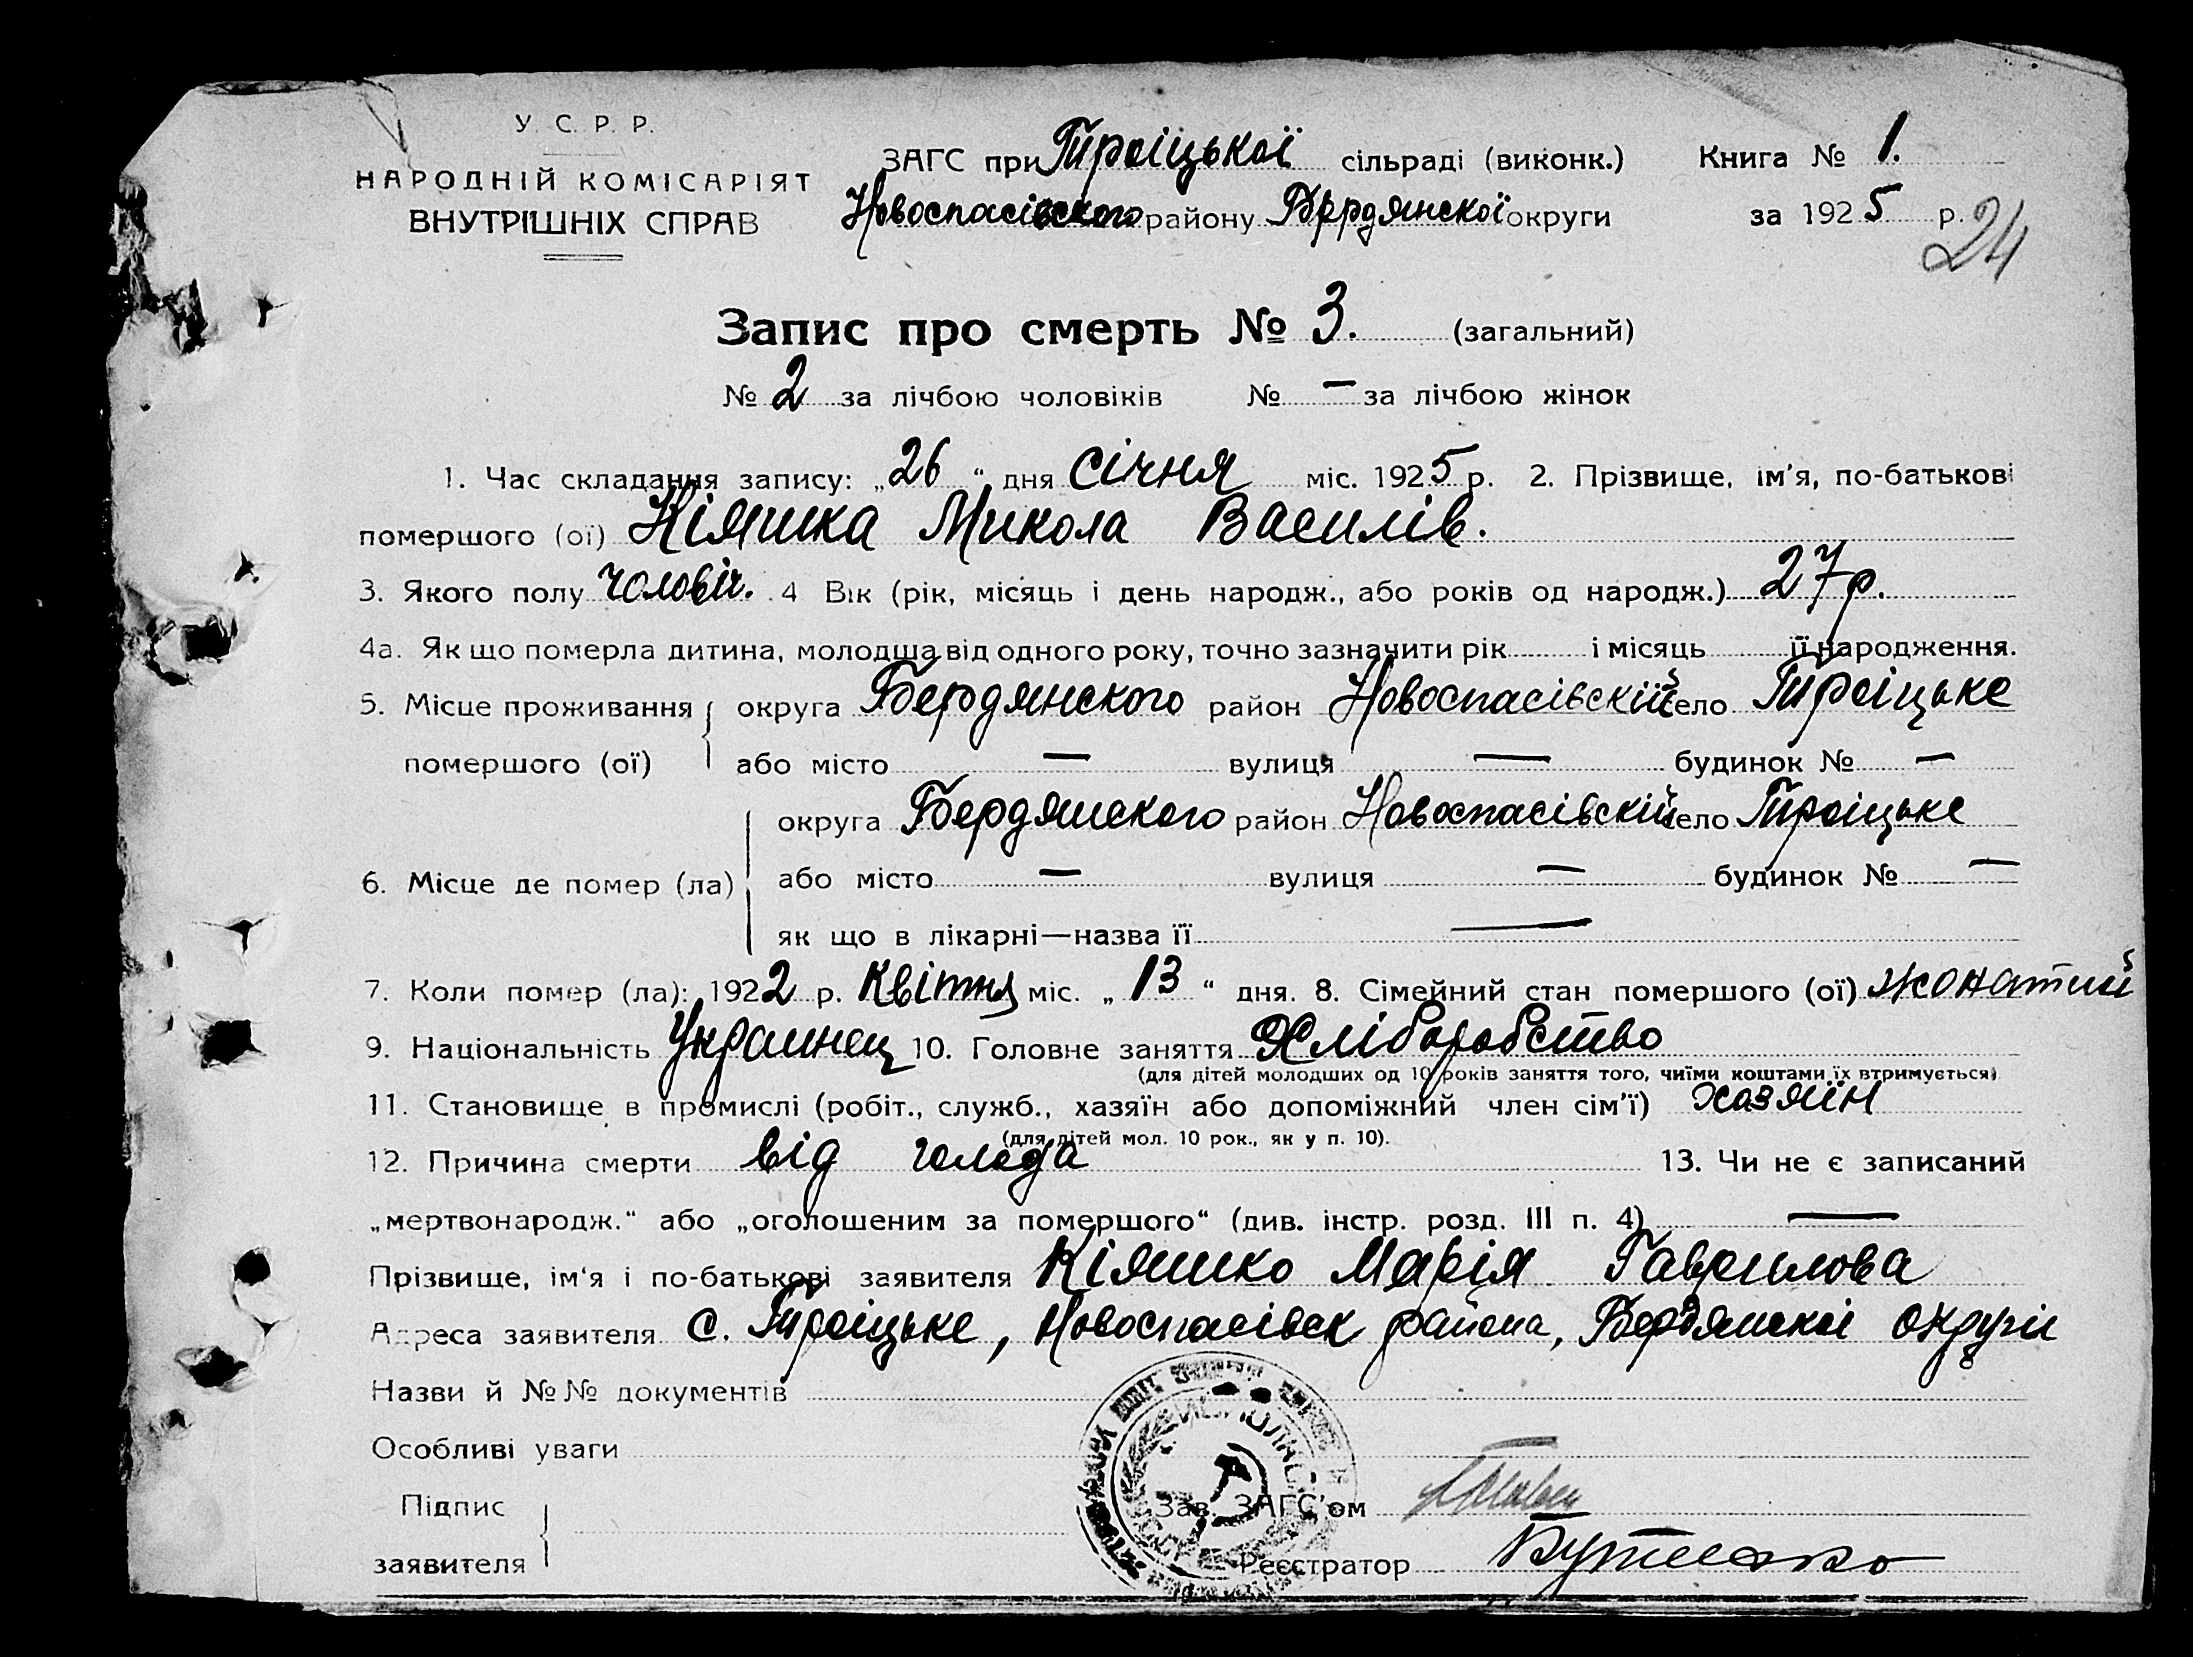 У. С. Р. Р.
НАРОДНІЙ КОМІСАРІЯТ
ВНУТРІШНІХ СПРАВ
ЗАГС при Троїцької сільраді (виконк.) Книга № 1.
Новоспасівского району Бердянскої округи за 1925 р.
24
Запис про смерть № 3. (загальний)
№ 2 за лічбою чоловіків № — за лічбою жінок
1. Час складання запису: „26“ дня Січня міс. 1925 р. 2. Прізвище, ім'я, по-батькові
помершого (ої) Кіяшка Микола Василів.
3. Якого полу чоловіч. 4 Вік (рік, місяць і день народж., або років од народж.) 27 р.
4а. Як що померла дитина, молодша від одного року, точно зазначити рік і місяць її народження.
5. Місце проживання округа Бердянского район Новоспасівскій село Троіцьке
помершого (ої) або місто — вулиця — будинок № —
округа Бердянского район Новоспасівскій село Троіцьке
6. Місце де помер (ла) або місто — вулиця — будинок № —
як що в лікарні—назва її —
7. Коли помер (ла): 1922 р. Квітня міс. „13“ дня. 8. Сімейний стан помершого (ої) жонатий
9. Національність Украинец 10. Головне заняття Хліборобство
(для дітей молодших од 10 років заняття того, чиїми коштами їх втримується)
11. Становище в промислі (робіт., служб., хазяїн або допоміжний член сім'ї) хазяїн
(для дітей мол. 10 рок., як у п. 10).
12. Причина смерти від голода 13. Чи не є записаний
„мертвонародж.“ або „оголошеним за помершого“ (див. інстр. розд. III п. 4) —
Прізвище, ім'я і по-батькові заявителя Кіяшко Марія Гаврилова
Адреса заявителя с. Троіцьке, Новоспасівск района, Бердянскоі округи
Назви й №№ документів
Особливі уваги
Підпис
заявителя
Зав. ЗАГС'ом
Реєстратор Бутенко